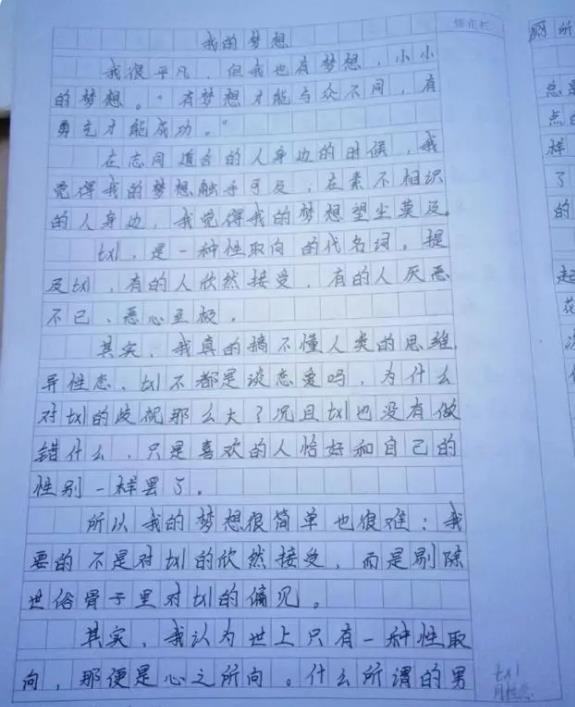 我的梦想
我很平凡，但我也有梦想，小小
的梦想。“有梦想才能与众不同，有
勇气才能成功。”
在志同道合的人身边的时候，我
觉得我的梦想触手可及，在素不相识
的人身边，我觉得我的梦想望尘莫及。
txl，是一种性取向的代名词。提
及txl，有的人欣然接受，有的人厌恶
不已、恶心至极。
其实，我真的搞不懂人类的思维，
异性恋、txl不都是谈恋爱吗，为什么
对txl的歧视那么大？况且txl也没有做
错什么，只是喜欢的人恰好和自己的
性别一样罢了。
所以我的梦想很简单也很难：我
要的不是对txl的欣然接受，而是剔除
世俗骨子里对txl的偏见。
其实，我认为世上只有一种性取
向，那便是心之所向。什么所谓的男
txl
同性恋
所
总
点
样
了
的
起
花